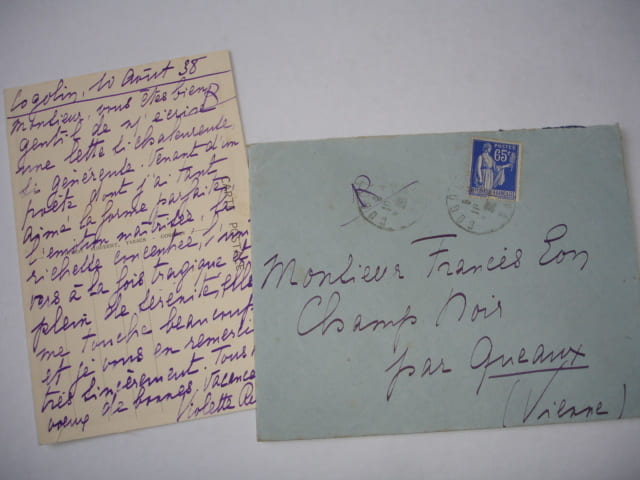 Cogolin, 10 Août 38
Monsieur, vous êtes bien
gentil de m'écrire
une lettre si chaleureuse,
si généreuse. Venant d'un
poète dont j'ai tant
aimé la forme parfaite,
l'émotion maîtrisée, la
richesse concentrée, l'uni
vers à la fois tragique et
plein de sérénité, elle
me touche beaucoup
et je vous en remercie
très sincèrement. Tous
voeux de bonnes vacances
Violette Re
CARTE POSTALE
POSTES
65c
Monsieur Francis Eon
Champ Noir
par Queaux
(Vienne)